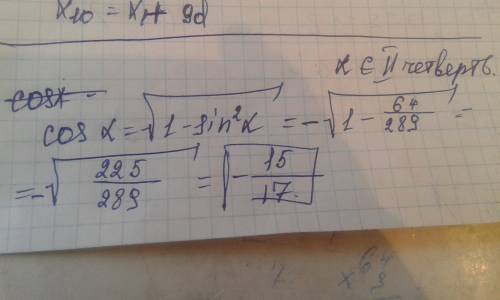 x₁₀ = x₁ + 9d
α ∈ II четверть.
cos α = √(1 - sin²α) = -√(1 - 64/289) =
= -√(225/289) = -15/17